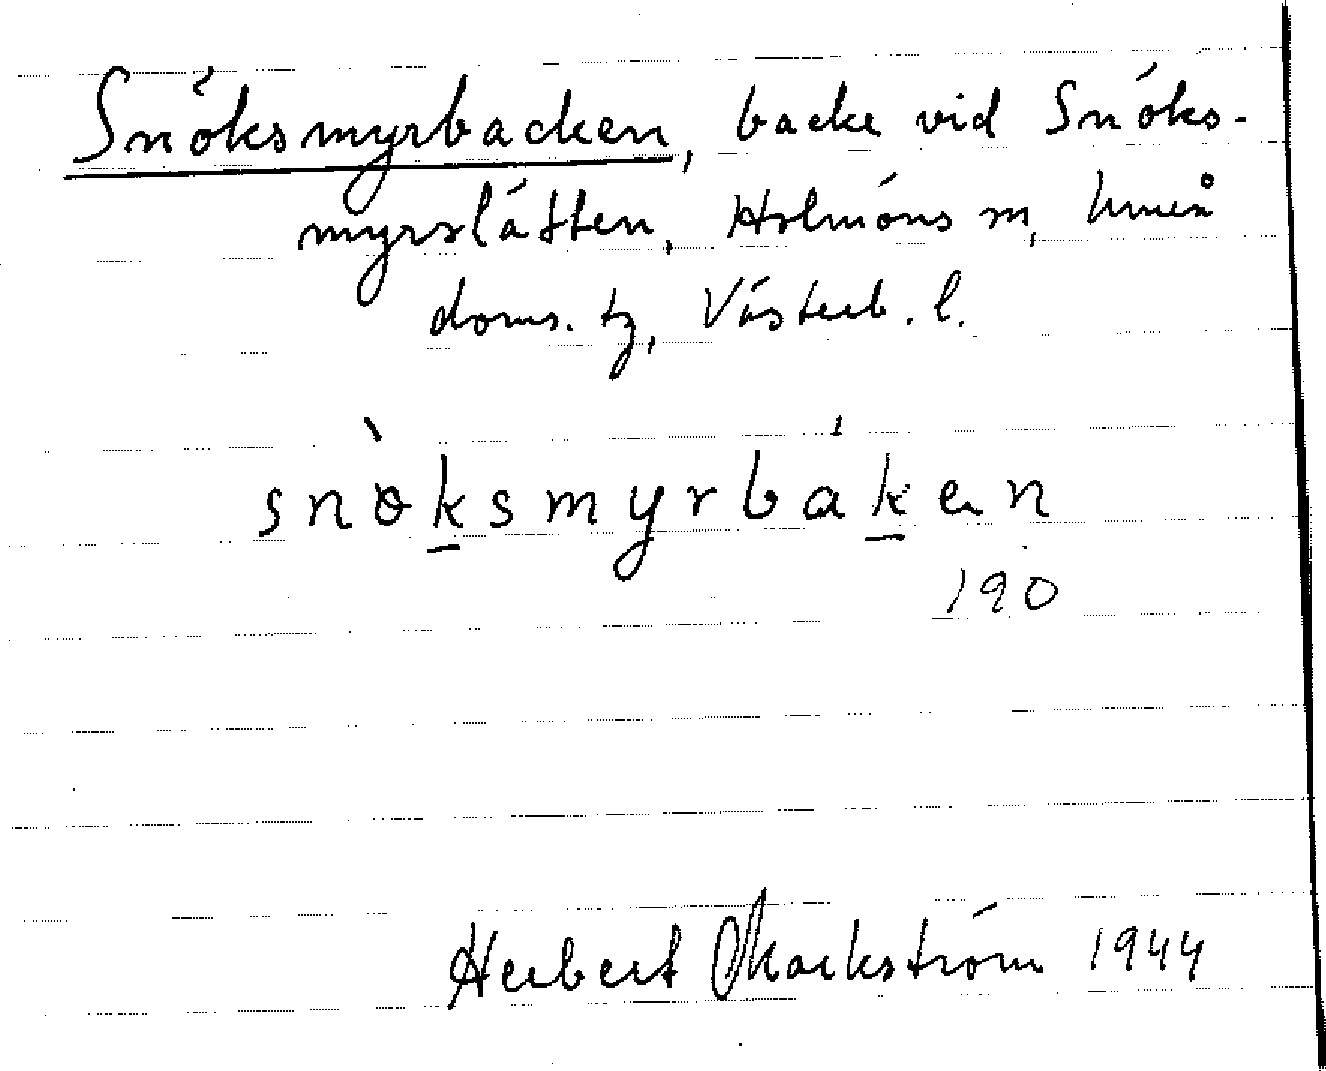 Snöksmyrbacken, backe vid Snöks-
myrslåtten, Holmöns sn, Umeå
doms. tg, Västerb. l.
snöksmyrbàken
190
Herbert Markström 1944